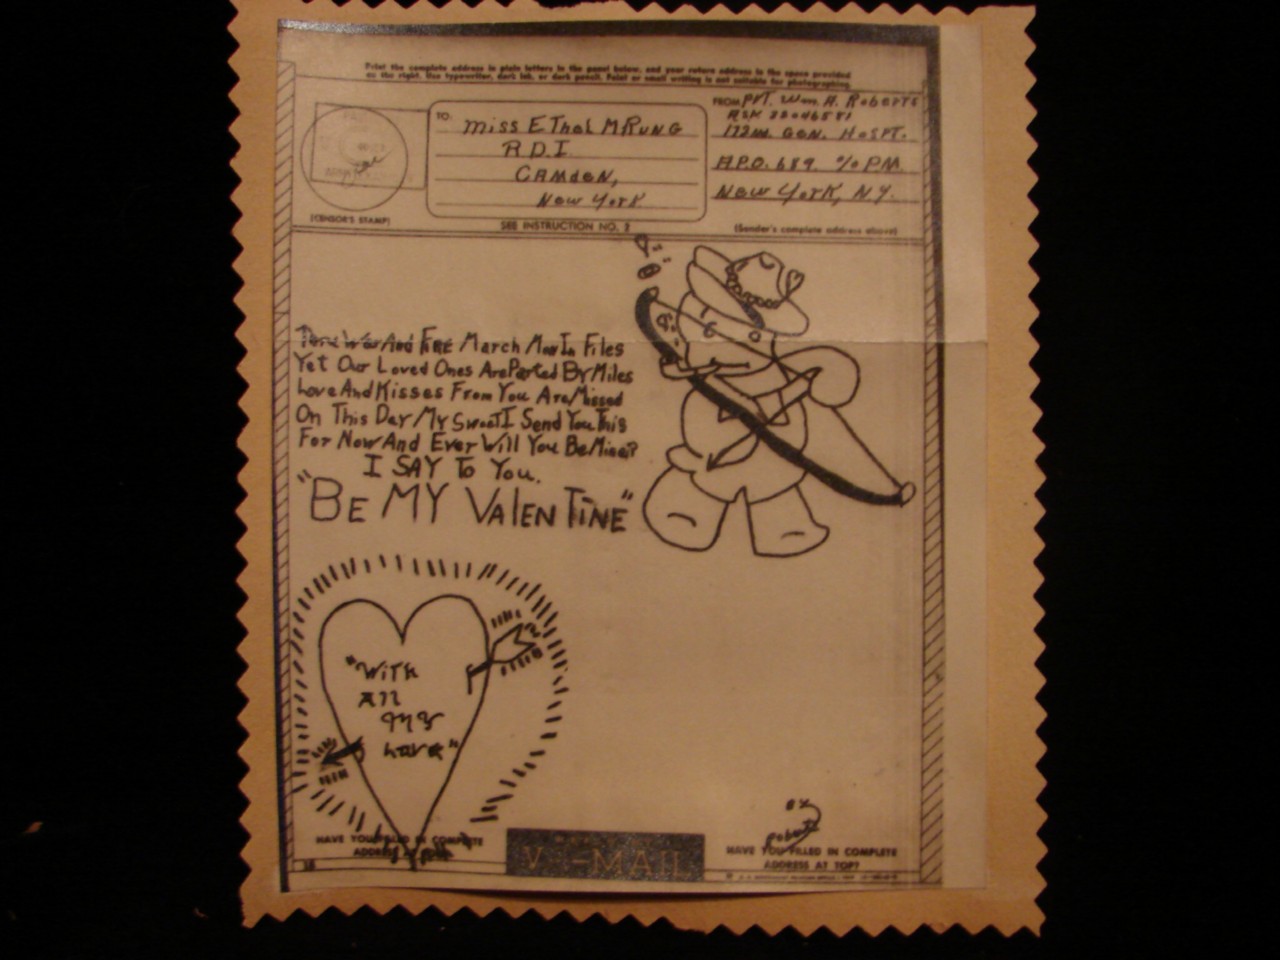 Print the complete address in plain letters in the panel below, and your return address in the space provided
on the right. Use typewriter, dark ink, or dark pencil. Faint or small writing is not suitable for photographing.
TO:
Miss Ethel M Rung
R.D.1
Camden,
New York
FROM Pvt. Wm. A. Roberts
172nd. Gen. Hospt.
A.P.O. 689. % P.M.
New York, N.Y.
(CENSOR'S STAMP)
SEE INSTRUCTION NO. 2
(Sender's complete address above)
War And Fire March Men In Files
Yet Our Loved Ones Are Parted By Miles
Love And Kisses From You Are Missed
On This Day My Sweet I Send You This
For Now And Ever Will You Be Mine?
I SAY To You.
"BE MY VALENTINE"
"With
All
My
Love"
By
Roberts
HAVE YOU FILLED IN COMPLETE
ADDRESS AT
V···-MAIL
HAVE YOU FILLED IN COMPLETE
ADDRESS AT TOP?